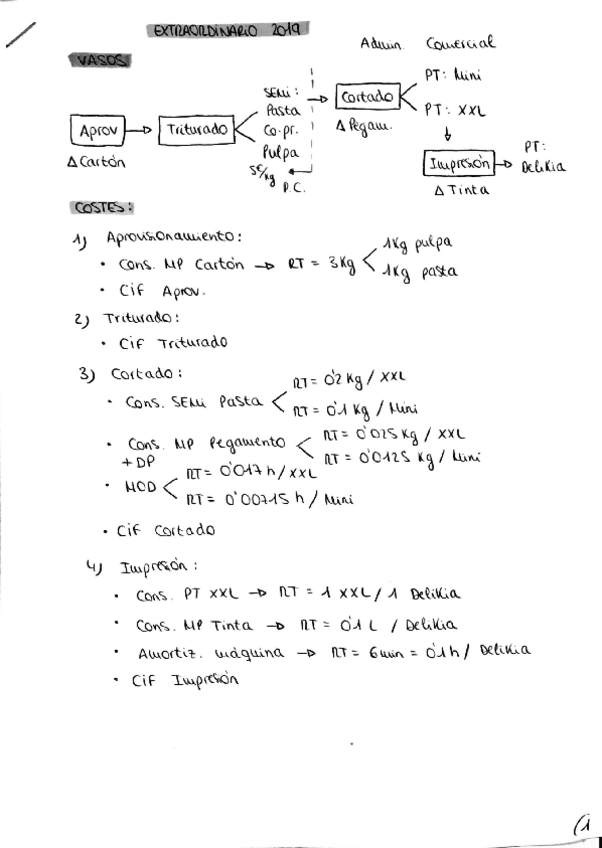 EXTRAORDINARIO 2019
Admin. Comercial
VASOS
Aprov
Δ Cartón
Triturado
SEMi:
Pasta
Co-pr.
Pulpa
5€/kg
P.C.
Cortado
Δ Pegam.
PT: Mini
PT: XXL
Impresión
Δ Tinta
PT:
Delikia
COSTES:
1) Aprovisionamiento:
• Cons. MP Cartón → RT = 3 Kg < 1 Kg pulpa
1 Kg pasta
• Cif Aprov.
2) Triturado:
• Cif Triturado
3) Cortado:
• Cons. SEMi Pasta < RT = 0'2 Kg / XXL
RT = 0'1 Kg / Mini
• Cons. MP Pegamento < RT = 0'025 Kg / XXL
+ DP RT = 0'0125 Kg / Mini
• MOD < RT = 0'017 h / XXL
RT = 0'00715 h / Mini
• Cif Cortado
4) Impresión:
• Cons. PT XXL → RT = 1 XXL / 1 Delikia
• Cons. MP Tinta → RT = 0'1 L / Delikia
• Amortiz. máquina → RT = 6 min = 0'1 h / Delikia
• Cif Impresión
(1